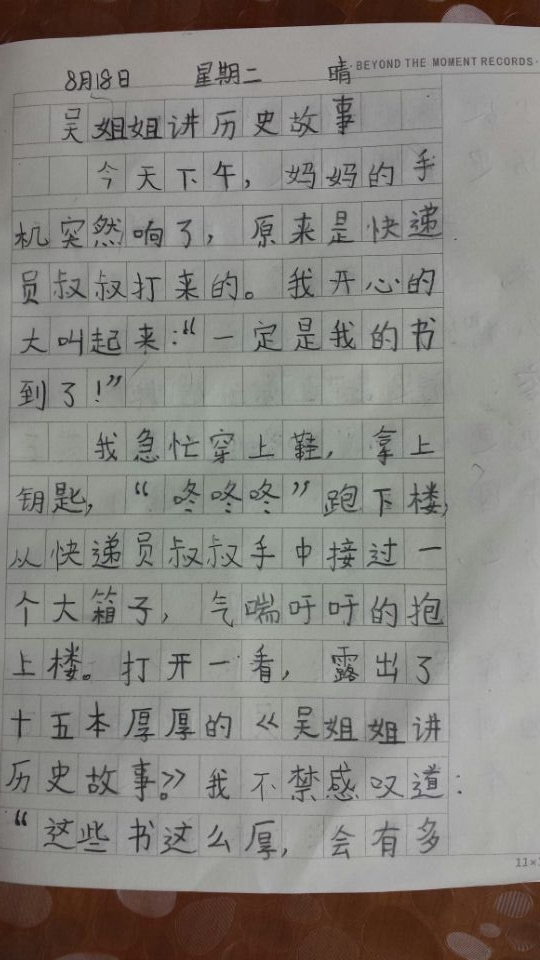 8月18日 星期二 晴 ·BEYOND THE MOMENT RECORDS·
吴姐姐讲历史故事
今天下午，妈妈的手
机突然响了，原来是快递
员叔叔打来的。我开心的
大叫起来：“一定是我的书
到了！”
我急忙穿上鞋，拿上
钥匙，“咚咚咚”跑下楼，
从快递员叔叔手中接过一
个大箱子，气喘吁吁的抱
上楼。打开一看，露出了
十五本厚厚的《吴姐姐讲
历史故事》。我不禁感叹道：
“这些书这么厚，会有多